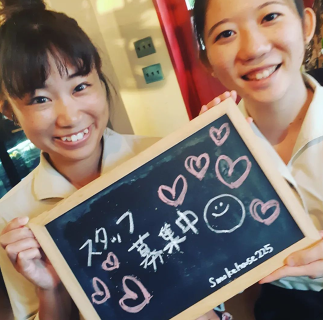 スタッフ
募集中
Smokehouse225